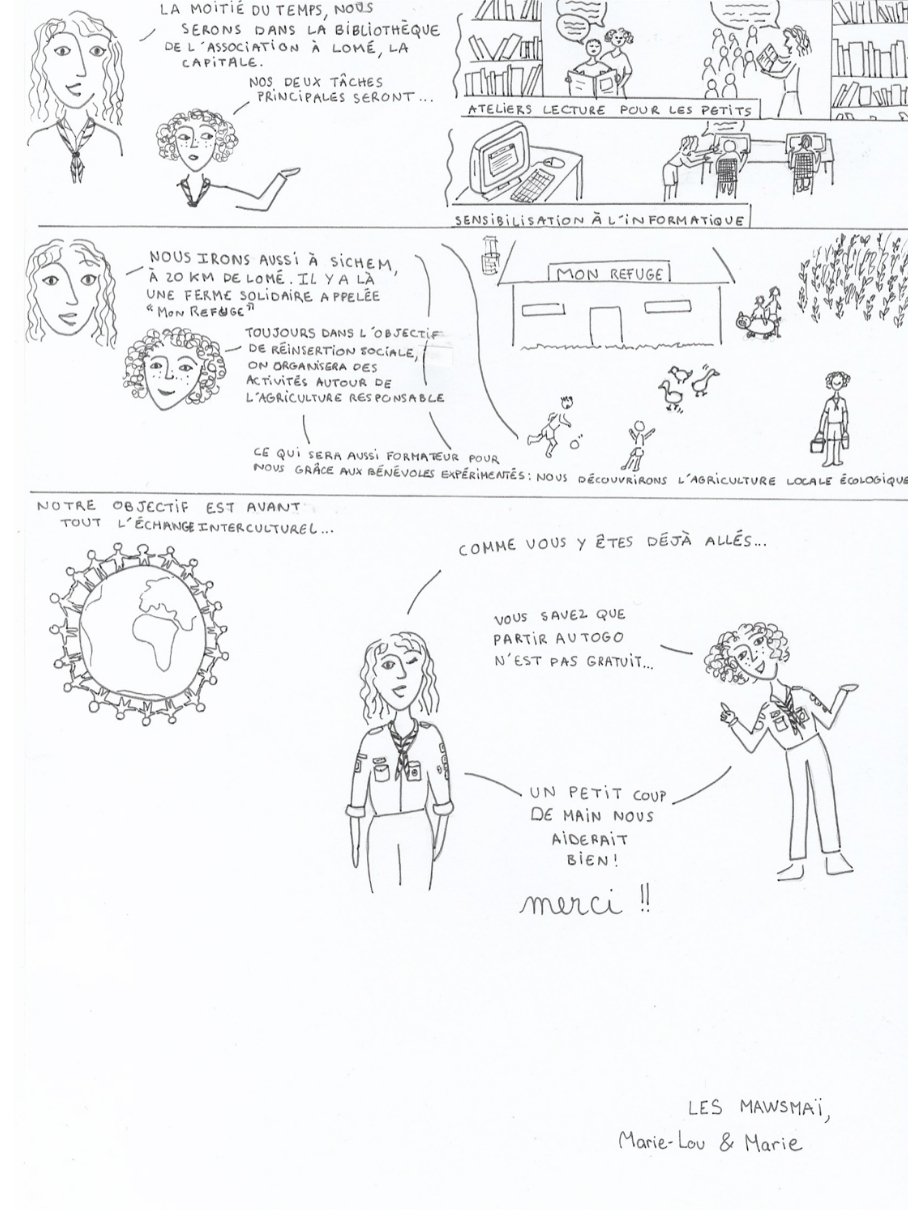 LA MOITIÉ DU TEMPS, NOUS
SERONS DANS LA BIBLIOTHÈQUE
DE L'ASSOCIATION À LOMÉ, LA
CAPITALE.
NOS DEUX TÂCHES
PRINCIPALES SERONT...
ATELIERS LECTURE POUR LES PETITS
SENSIBILISATION À L'INFORMATIQUE
NOUS IRONS AUSSI À SICHEM,
À 20 KM DE LOMÉ. IL Y A LÀ
UNE FERME SOLIDAIRE APPELÉE
"MON REFUGE"
TOUJOURS DANS L'OBJECTIF
DE RÉINSERTION SOCIALE,
ON ORGANISERA DES
ACTIVITÉS AUTOUR DE
L'AGRICULTURE RESPONSABLE
MON REFUGE
CE QUI SERA AUSSI FORMATEUR POUR
NOUS GRÂCE AUX BÉNÉVOLES EXPÉRIMENTÉS : NOUS DÉCOUVRIRONS L'AGRICULTURE LOCALE ÉCOLOGIQUE
NOTRE OBJECTIF EST AVANT
TOUT L'ÉCHANGE INTERCULTUREL...
COMME VOUS Y ÊTES DÉJÀ ALLÉS...
VOUS SAVEZ QUE
PARTIR AU TOGO
N'EST PAS GRATUIT...
UN PETIT COUP
DE MAIN NOUS
AIDERAIT
BIEN!
merci !!
LES MAWSMAÏ,
Marie-Lou & Marie